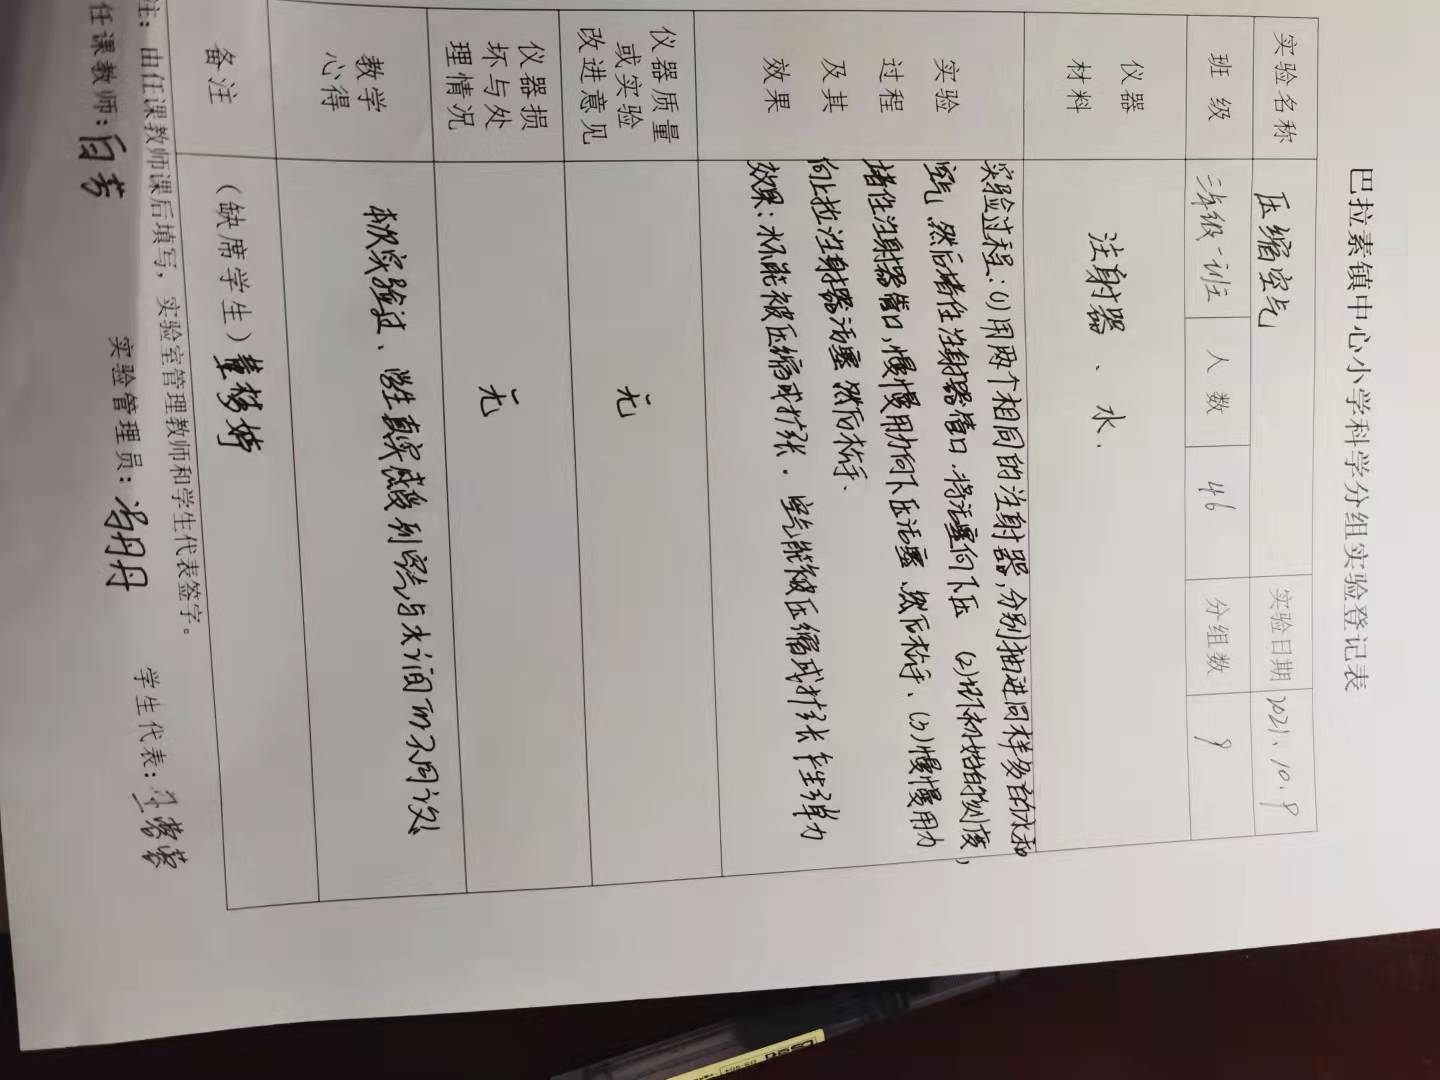 巴拉素镇中心小学科学分组实验登记表
实验名称 压缩空气 实验日期 2021.10.9
班级 三年级一班 人数 46 分组数 9
仪器
材料
注射器、水.
实验
过程
及其
效果
实验过程:(1)用两个相同的注射器,分别抽进同样多的水和
空气,然后堵住注射器管口,将活塞向下压 (2)记下初始的刻度,
堵住注射器管口,慢慢用力向下压活塞、然后松手、(3)慢慢用力
向上拉注射器活塞 然后松手、
效果:水不能被压缩或扩张. 空气能被压缩或扩张 产生弹力
仪器质量
或实验
改进意见
无
仪器损
坏与处
理情况
无
教学
心得
本次实验过、学生真实感受到空气与水之间的不同
备注
(缺席学生)董梦婷
注:由任课教师课后填写,实验室管理教师和学生代表签字。
任课教师: 实验管理员:冯丹丹 学生代表: